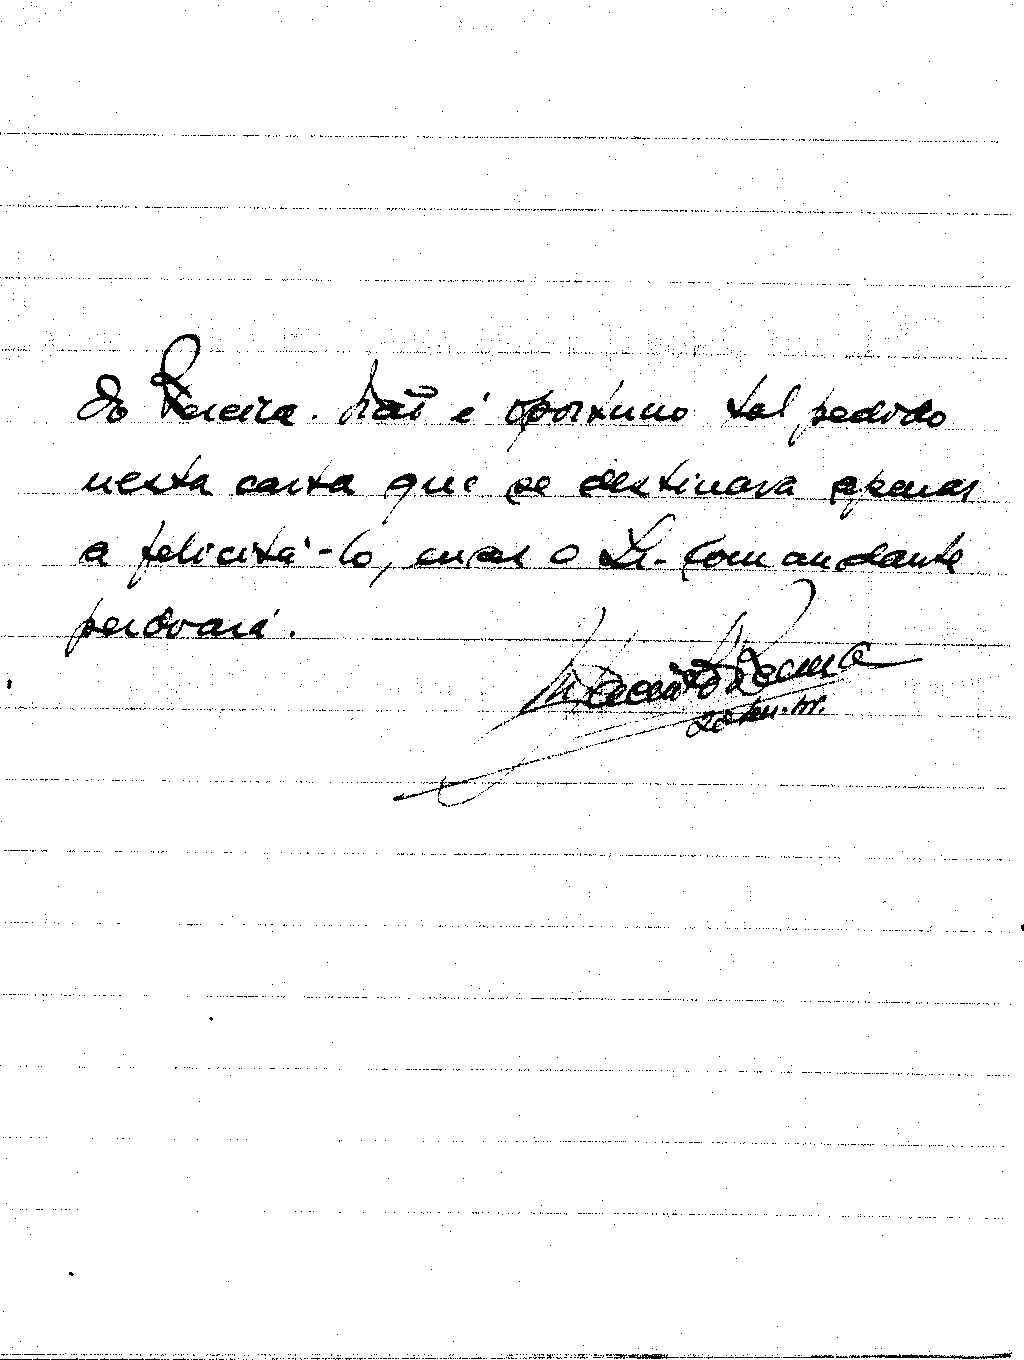 do Pereira. Não é oportuno tal pedido
nesta carta que se destinava apenas
a felicitá-lo, mas o Sr. Comandante
perdoará.